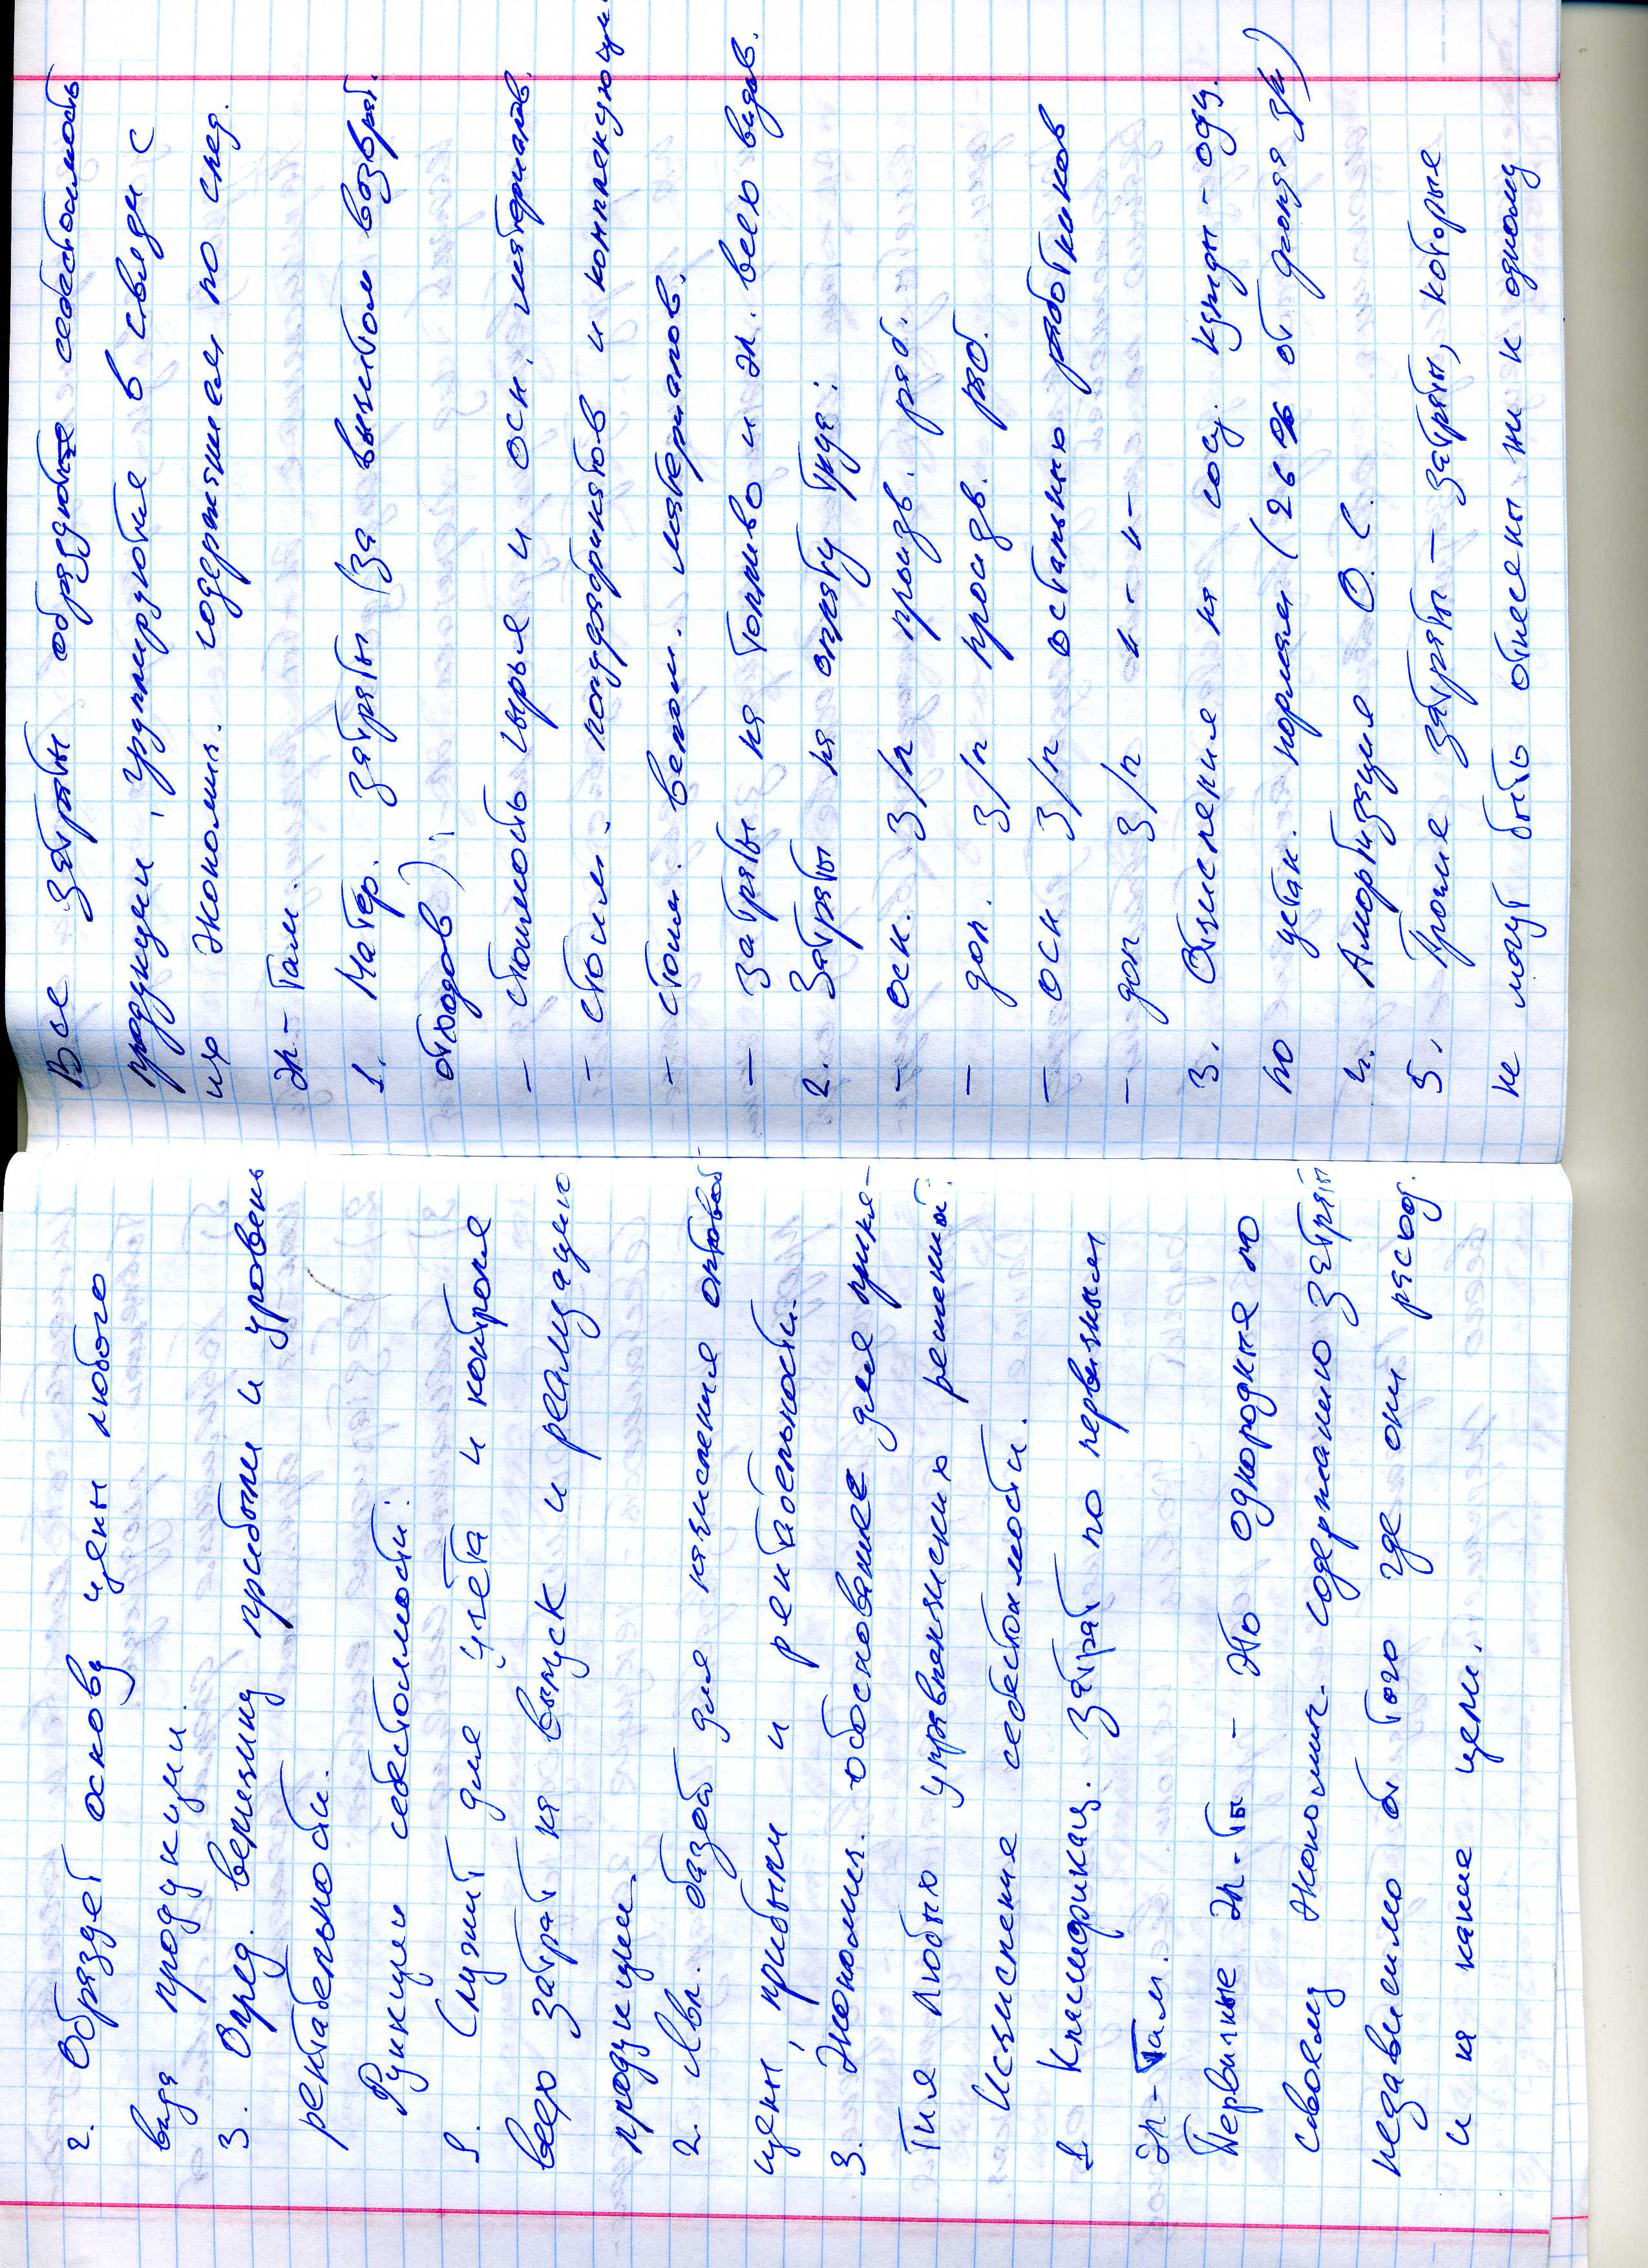 2. Образует основу цены любого
вида продукции.
3. Опред. величину прибыли и уровень
рентабельности.
Функции себестоимости:
1. Служит для учета и контроля
всех затрат на выпуск и реализацию
продукции.
2. Явл. базой для исчисления оптовой
цены, прибыли и рентабельности.
3. Эконом. обоснование для приня-
тия любых управленческих решений.
Исчисление себестоимости.
1. Классификац. затрат по первичным
эл-там.
Первичные эл-ты - это однородные по
своему экономич. содержанию затраты
независимо от того где они расход.
и на какие цели.
Все затраты образующие себестоимость
продукции, группируются в связи с
их эконом. содержанием по след.
эл-там.
1. Матер. затраты (за вычетом возврат.
отходов):
- стоимость сырья и осн. материалов.
- стоим. полуфабрикатов и комплектующ.
- стоим. вспом. материалов.
- Затраты на топливо и эл. всех видов.
2. Затраты на оплату труда:
- осн. з/п произв. раб.
- доп. з/п произв. раб.
- осн з/п остальных работников
- доп з/п -"-"-
3. Отчисления на соц. нужды - одн.
по устан. нормам (26% от фонда з/п)
4. Амортизация О.С.
5. Прочие затраты - затраты, которые
не могут быть отнесены ни к одному